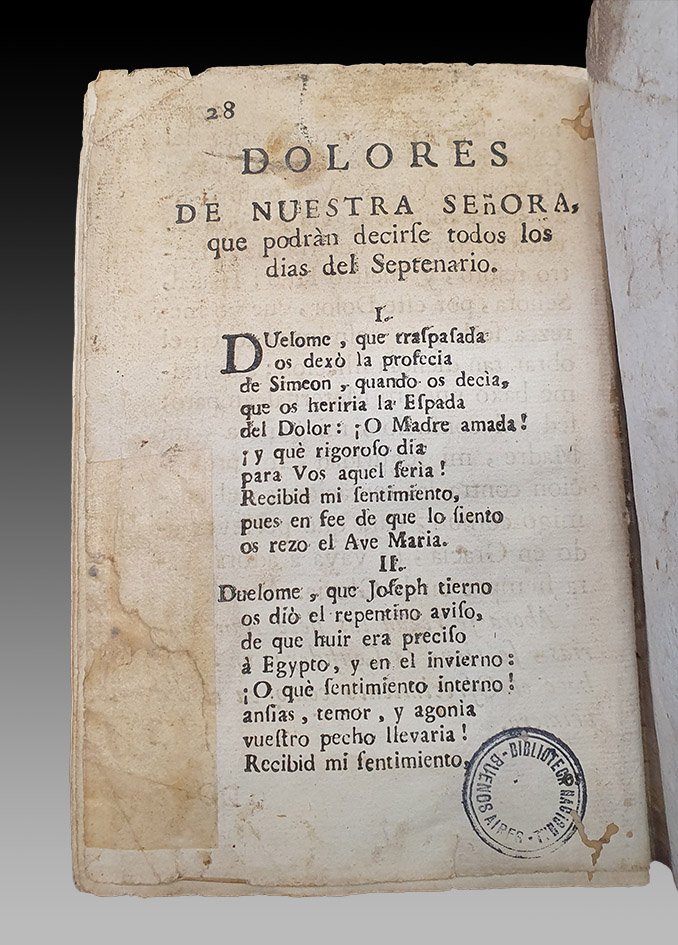 28
DOLORES
DE NUESTRA SEñORA,
que podràn decirſe todos los
dias del Septenario.
I.
DUelome, que traſpaſada
os dexò la profecia
de Simeon, quando os decia,
que os heriria la Eſpada
del Dolor: ¡O Madre amada!
¡y què rigoroſo dia
para Vos aquel ſeria!
Recibid mi ſentimiento,
pues en fee de que lo ſiento
os rezo el Ave Maria.
II.
Duelome, que Joſeph tierno
os diò el repentino aviſo,
de que huir era preciſo
à Egypto, y en el invierno:
¡O què ſentimiento interno!
anſias, temor, y agonia
vueſtro pecho llevaria!
Recibid mi ſentimiento,
BIBLIOTECA NACIONAL
BUENOS AIRES